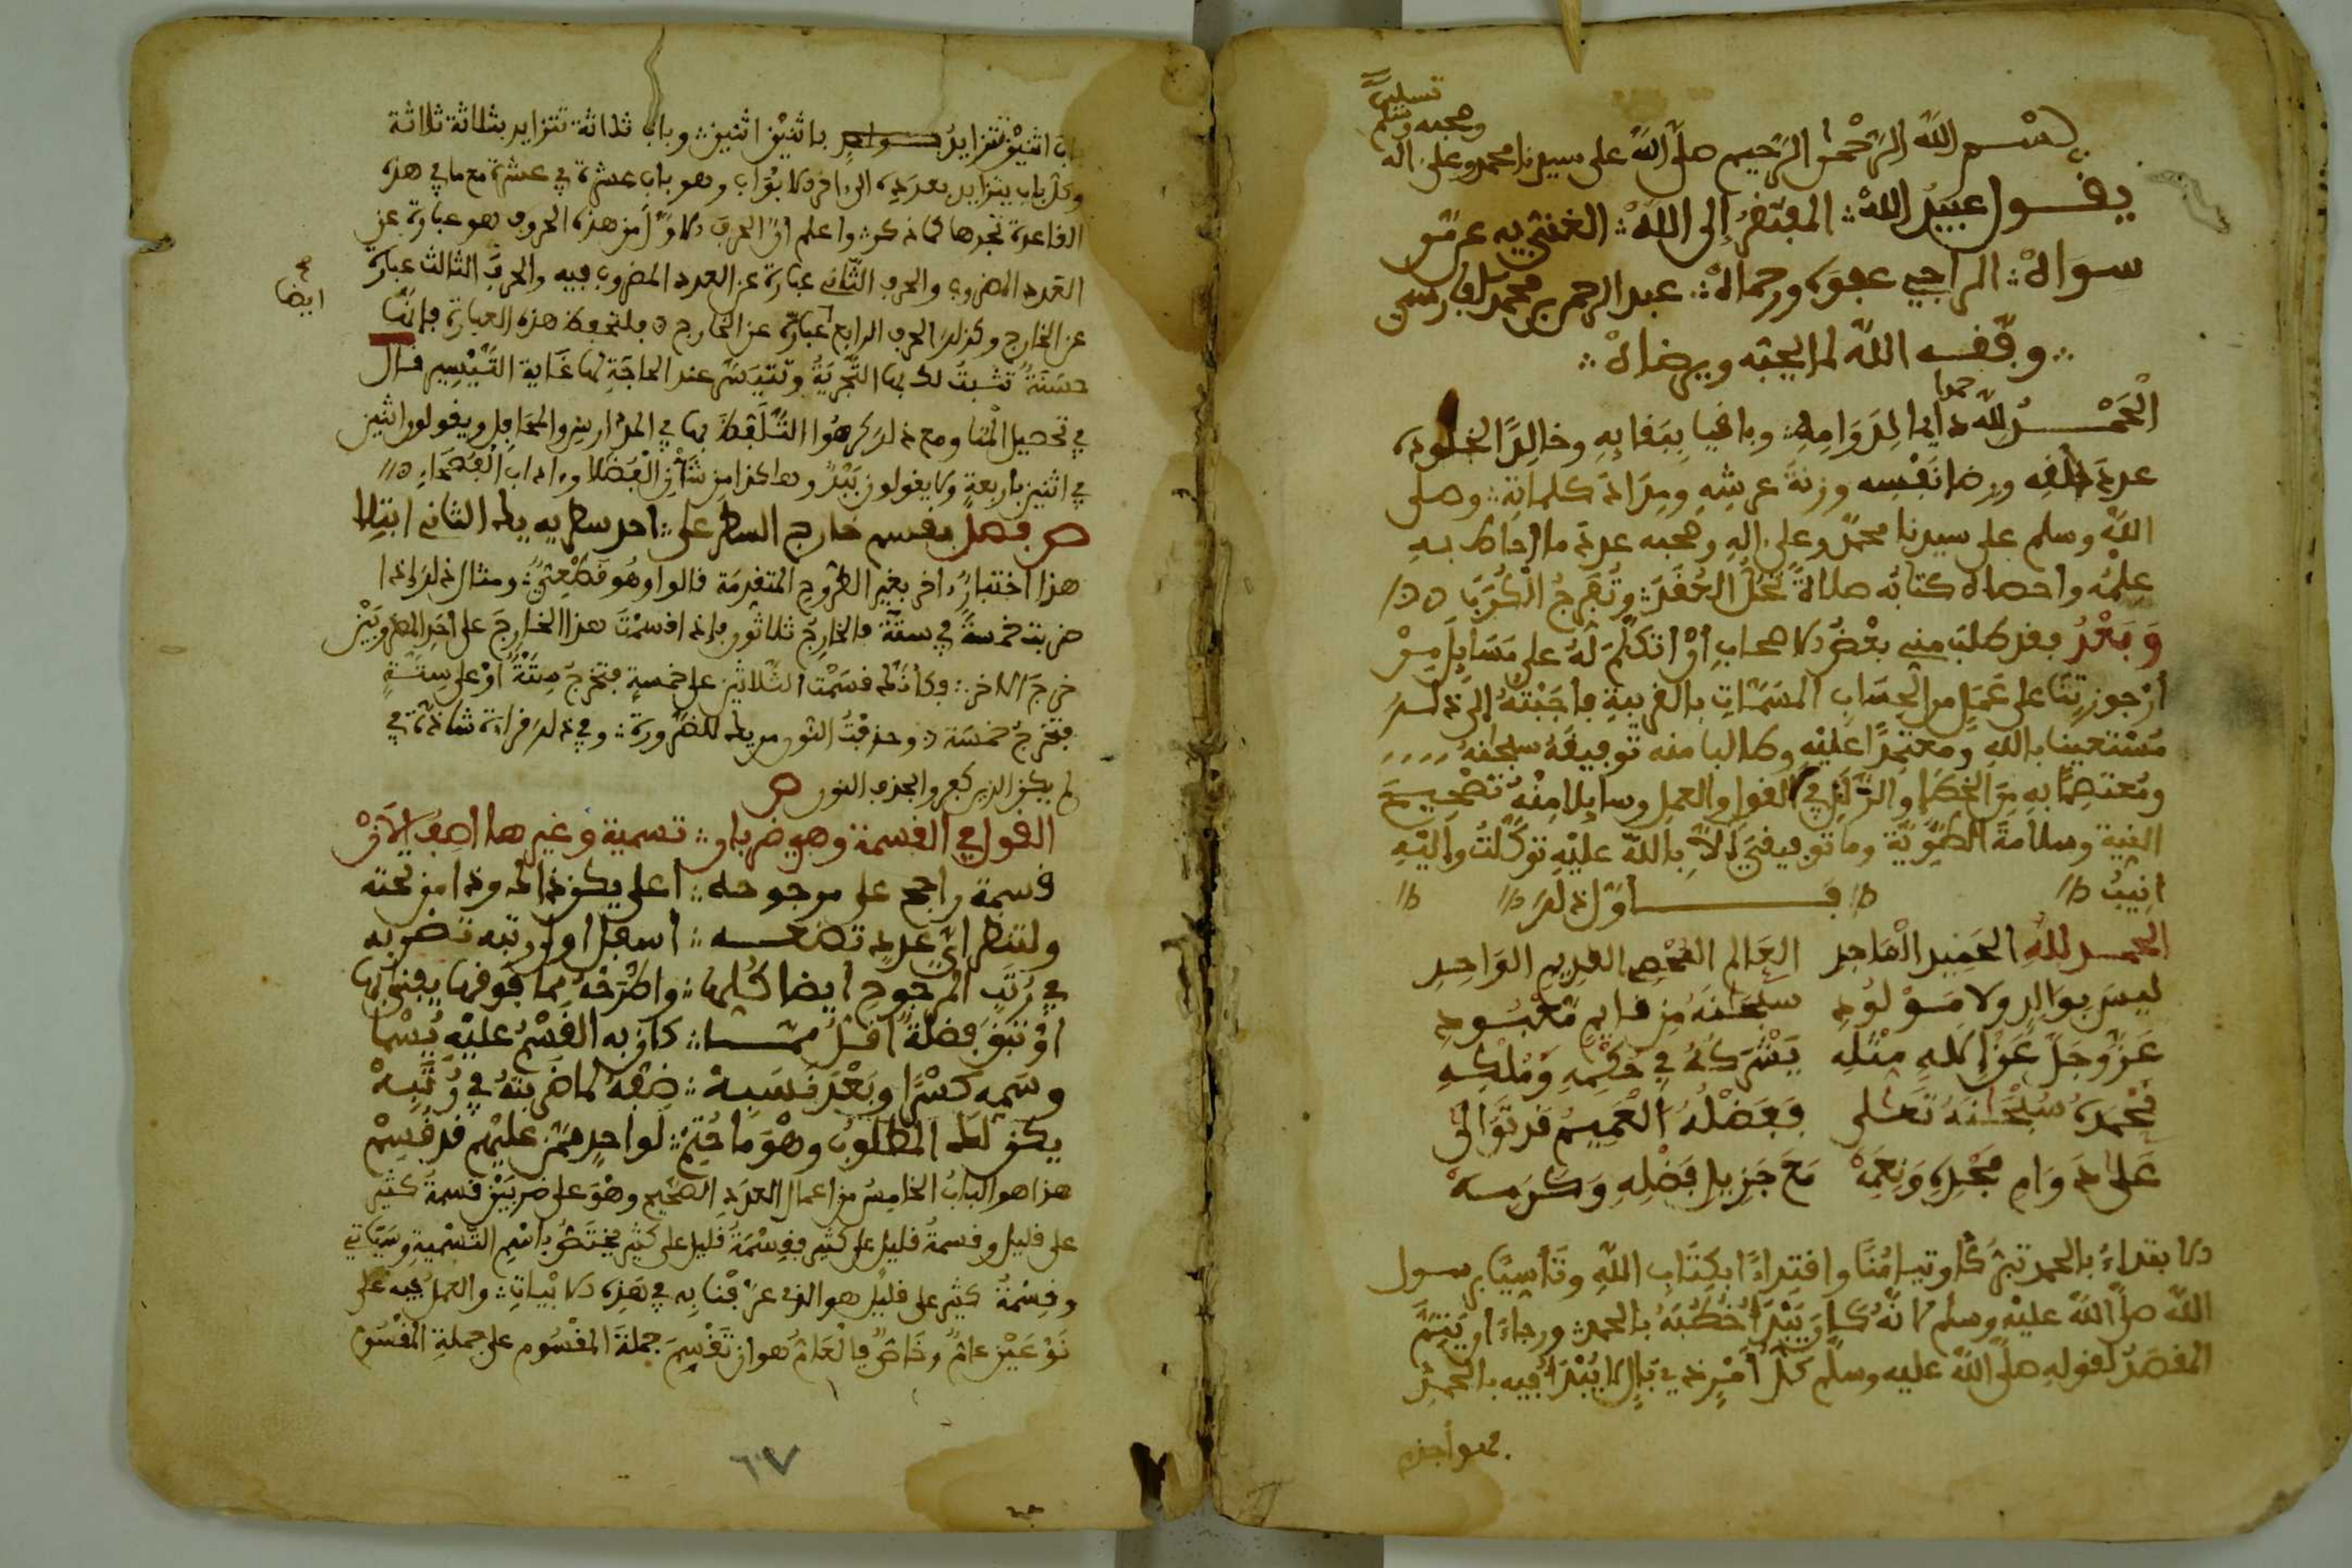 بسم الله الرحمن الرحيم صلى الله على سيدنا محمد وعلى ءاله
وصحبه وسلم
تسليما
يقول عبيد الله المفتقر إلى الله الغني به عن من
سواه الراجي عفوه ورحماه عبد الرحمن بن محمد الفارسي
وفقه الله لما يحبه ويرضاه
الحمد لله حمدا دايما لدوامه وباقيا ببقايه وخالدا لخلوده
عدد خلقه ورضا نفسه وزنة عرشه ومداد كلماته وصلى
الله وسلم على سيدنا محمد وعلى ءاله وصحبه عدد ما أحاط به
علمه واحصاه كتابه صلاة تحل العقد وتفرج الكرب
وبعد فقد طلب مني بعض الاصحاب أن اتكلم له على مسايل من
أرجوزتنا على عمل من الحساب المسمات بالغريبة فاجبته إلى ذلك
مستعينا بالله ومعتمدا عليه وطالبا منه توفيقه سبحانه
ومعتصما به من الخطإ والزلل في القول والعمل وسايلا منه تصحيح
النية وسلامة الطوية وما توفيقي إلا بالله عليه توكلت وإليه
انيب أول ذلك
الحمد لله الحميد الماجد العالم المحصي القديم الواحد
ليس بوالد ولا مولود سبحانه من قايم معبود
عز وجل عن إله مثله يشركه في حكمه وملكه
نحمده سبحانه تعلى ففضله العميم قد توالى
على دوام مجده ونعمه مع جزيل فضله وكرمه
الابتداء بالحمد تبركا وتيامنا واقتداءا بكتاب الله وتأسيا برسول
الله صلى الله عليه وسلم لانه كان يبدأ خطبه بالحمد ورجاء ان يتم
المقصد لقوله صلى الله عليه وسلم كل أمر ذي بال لا يبدأ فيه بالحمد
فهو أجذم
باب اثنين تتزايد باثنين اثنين وباب ثلاثة تتزايد بثلاثة ثلاثة
وكل باب يتزايد بعدده الى ءاخر الابواب وهو باب عشرة في عشرة مع ما في هذه
القاعدة تجدها كما ذكر واعلم ان الحرف الاول من هذه الحروف هو عبارة عن
العدد المضروب والحرف الثاني عبارة عن العدد المضروب فيه والحرف الثالث عبارة
ايضا
عن الخارج وكذلك الحرف الرابع عبارة عن الخارج فلتحفظ هذه العبارة فإنها
حسنة تثبت لك بها التجربة وتتيسر عند الحاجة لها غاية التيسير قال
في تحصيل المنا ومع ذلك كرهوا التلفظ بها في المدارس والمحافل ويقولون اثنين
في اثنين باربعة ولا يقولون ببد وهاكذا من شأن الفضلاء واداب الفصحاء
ص فصل بقسم خارج السطر على احد سطريه يك الثاني ابتلا
هذا اختبار ءاخر بغير الطروح المتقدمة قالوا وهو قطعي ومثال ذلك إذا
ضربت خمسة في ستة فالخارج ثلاثون فإذا قسمت هذا الخارج على أحد المضروبين
خرج الاخر فكأنك قسمت الثلاثين على خمسة فتخرج ستة أو على ستة
فتخرج خمسة وحذفت النون من يك للضرورة وفي ذلك قراءة شاذة في
لم يكن الذين كفروا بحذف النون ص
القول في القسمة وهي ضربان تسمية وغيرها اصف الآن
قسمة راجح على مرجوح له اعلى يكون ذاك وذا من تحته
ولتنظر أي عدد تضعه أسفل اولى رتبه تضربه
في رتب المرجوح أيضا كلها واطرحه مما فوقها يفنى بها
أو تبق فضلة أقل مما كان به القسم عليه يسما
وسمه كسرا وبعد نسبه ضفه لما ضربته في رتبه
يكن لك المطلوب وهو ما حتم لواحد ممن عليهم قد قسم
هذا هو الباب الخامس من اعمال العدد الصحيح وهو على ضربين قسمة كثير
على قليل وقسمة قليل على كثير فقسمة قليل على كثير يختص باسم التسمية وسيأتي
وقسمة كثير على قليل هو الذي عرفنا به في هذه الابيات والعمل فيه على
نوعين عام وخاص فالعام هو ان تقسم جملة المقسوم على جملة المقسوم
٦٠٧